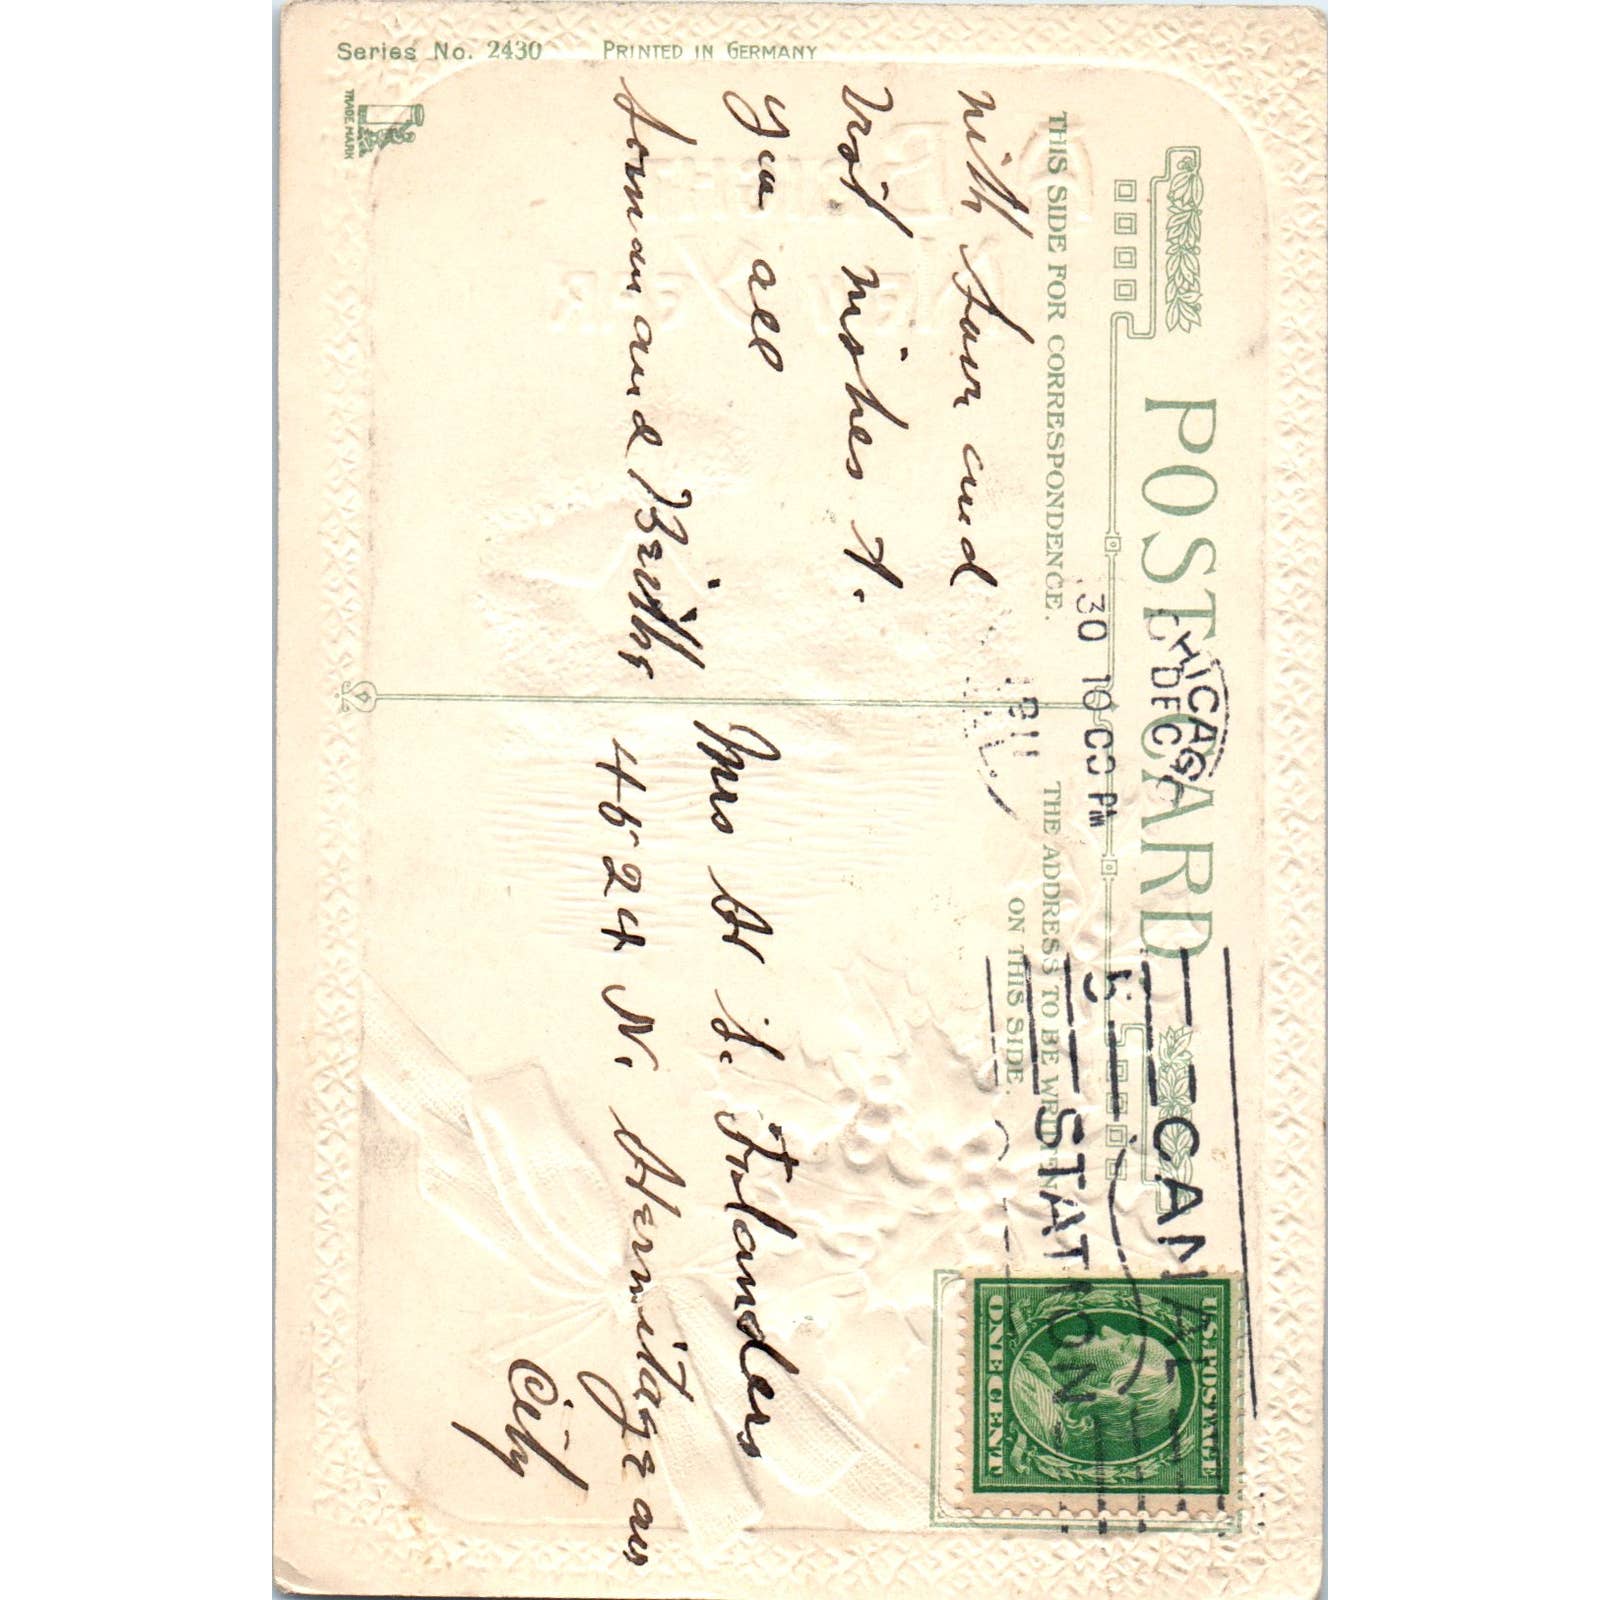 POST CARD
THIS SIDE FOR CORRESPONDENCE.
THE ADDRESS TO BE WRITTEN
ON THIS SIDE.
CHICAGO
DEC
30 10 00 PM
1911
ILL.
CANAL
STATION
U.S. POSTAGE
ONE CENT
with love and
best wishes to
you all
and
Mrs H J. Folanders
4524 N. Hermitage av
City
Series No. 2430 PRINTED IN GERMANY
TRADE MARK